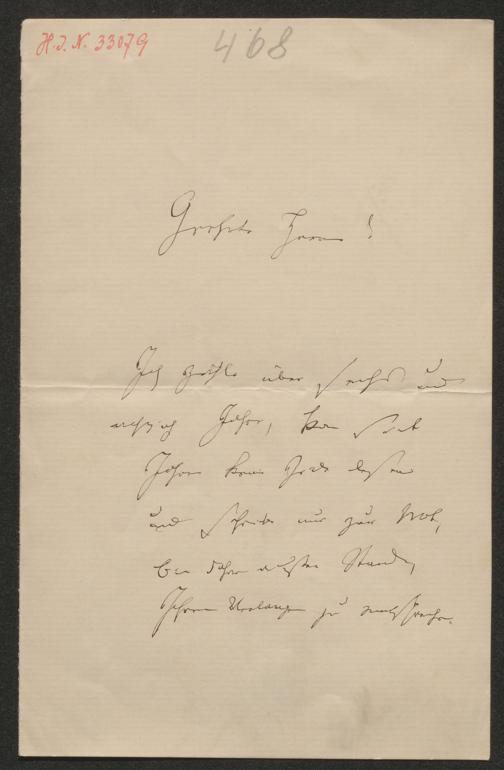 H. I. N. 33079
468
Geehrte Frau!
Ich zähle über sechs und
achtzig Jahre, kan seit
Jahren keine Zeile lesen
und schreibe nur zur Not,
bin daher außer Stande,
Ihrem Verlangen zu entsprechen.